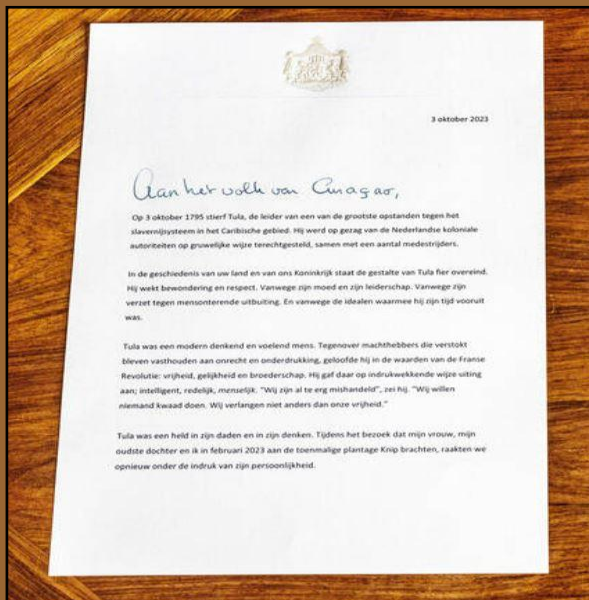 3 oktober 2023
Aan het volk van Curaçao,
Op 3 oktober 1795 stierf Tula, de leider van een van de grootste opstanden tegen het
slavernijsysteem in het Caribische gebied. Hij werd op gezag van de Nederlandse koloniale
autoriteiten op gruwelijke wijze terechtgesteld, samen met een aantal medestrijders.
In de geschiedenis van uw land en van ons Koninkrijk staat de gestalte van Tula fier overeind.
Hij wekt bewondering en respect. Vanwege zijn moed en zijn leiderschap. Vanwege zijn
verzet tegen mensonterende uitbuiting. En vanwege de idealen waarmee hij zijn tijd vooruit
was.
Tula was een modern denkend en voelend mens. Tegenover machthebbers die verstokt
bleven vasthouden aan onrecht en onderdrukking, geloofde hij in de waarden van de Franse
Revolutie: vrijheid, gelijkheid en broederschap. Hij gaf daar op indrukwekkende wijze uiting
aan; intelligent, redelijk, menselijk. "Wij zijn al te erg mishandeld", zei hij. "Wij willen
niemand kwaad doen. Wij verlangen niet anders dan onze vrijheid."
Tula was een held in zijn daden en in zijn denken. Tijdens het bezoek dat mijn vrouw, mijn
oudste dochter en ik in februari 2023 aan de toenmalige plantage Knip brachten, raakten we
opnieuw onder de indruk van zijn persoonlijkheid.